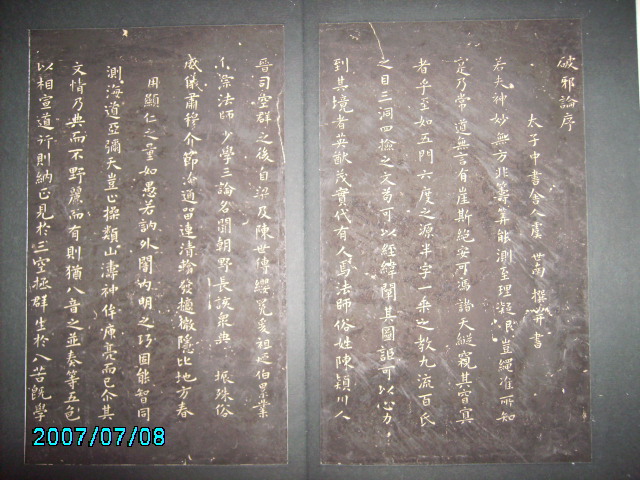 破邪論序
太子中書舍人虞世南撰并書
若夫神妙無方非籌筭能測至理凝邈豈繩准所知
寔乃常道無言有崖斯絕安可憑諸天縱窺其窅冥
者乎至如五門六度之源半字一乘之教九流百氏
之目三洞四檢之文苟可以經緯闡其圖詎可以心力
到其境者英猷茂實代有人焉法師俗姓陳潁川人
晉司空群之後自梁及陳世傳纓冕爰祖迄伯累業
儒宗法師少學三論名聞朝野長該眾典振殊俗
威儀肅穆介節淹通留連清翰發擿微隱比地方春
用顯仁之量如愚若訥外闇內明之巧固能智同
測海道亞彌天豈止操類山濤神侔庾亮而已介其
文情乃典而不野麗而有則猶八音之並奏等五色
以相宣道行則納正見於三空拯群生於八苦既學
2007/07/08